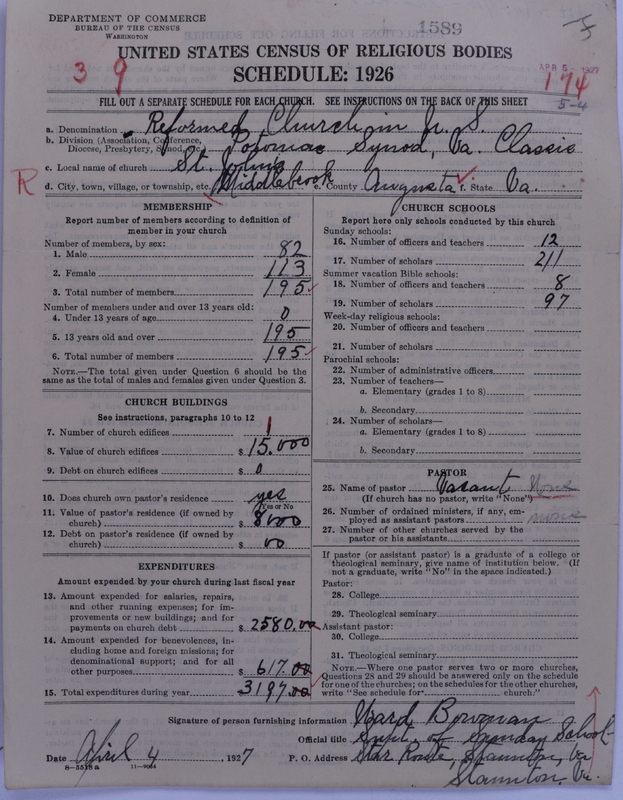 DEPARTMENT OF COMMERCE
BUREAU OF THE CENSUS
WASHINGTON
1589
UNITED STATES CENSUS OF RELIGIOUS BODIES
SCHEDULE: 1926
3 9
APR 5 1927
174
5-4
FILL OUT A SEPARATE SCHEDULE FOR EACH CHURCH. SEE INSTRUCTIONS ON THE BACK OF THIS SHEET
a. Denomination Reformed Church in U. S.
b. Division (Association, Conference, Diocese, Presbytery, Synod, Potomac Synod, Va. Classis
c. Local name of church St. Johns
R d. City, town, village, or township, etc. Middlebrook e. County Augusta f. State Va.
MEMBERSHIP
Report number of members according to definition of member in your church
Number of members, by sex:
1. Male 82
2. Female 113
3. Total number of members 195
Number of members under and over 13 years old:
4. Under 13 years of age 0
5. 13 years old and over 195
6. Total number of members 195
NOTE.—The total given under Question 6 should be the same as the total of males and females given under Question 3.
CHURCH BUILDINGS
See instructions, paragraphs 10 to 12
7. Number of church edifices 1
8. Value of church edifices $ 15.000
9. Debt on church edifices $ 0
10. Does church own pastor's residence yes
(Yes or No)
11. Value of pastor's residence (if owned by church) $ 8000
12. Debt on pastor's residence (if owned by church) $ 00
EXPENDITURES
Amount expended by your church during last fiscal year
13. Amount expended for salaries, repairs, and other running expenses; for improvements or new buildings; and for payments on church debt $ 2580.00
14. Amount expended for benevolences, including home and foreign missions; for denominational support; and for all other purposes $ 617.00
15. Total expenditures during year 3197.00
CHURCH SCHOOLS
Report here only schools conducted by this church
Sunday schools:
16. Number of officers and teachers 12
17. Number of scholars 211
Summer vacation Bible schools:
18. Number of officers and teachers 8
19. Number of scholars 97
Week-day religious schools:
20. Number of officers and teachers
21. Number of scholars
Parochial schools:
22. Number of administrative officers
23. Number of teachers—
a. Elementary (grades 1 to 8)
b. Secondary
24. Number of scholars—
a. Elementary (grades 1 to 8)
b. Secondary
PASTOR
25. Name of pastor Vacant None
(If church has no pastor, write "None")
26. Number of ordained ministers, if any, employed as assistant pastors none
27. Number of other churches served by the pastor or his assistants
If pastor (or assistant pastor) is a graduate of a college or theological seminary, give name of institution below. (If not a graduate, write "No" in the space indicated.)
Pastor:
28. College
29. Theological seminary
Assistant pastor:
30. College
31. Theological seminary
NOTE.—Where one pastor serves two or more churches, Questions 28 and 29 should be answered only on the schedule for one of the churches; on the schedules for the other churches, write "See schedule for church."
Signature of person furnishing information Ward Bowman
Official title Supt. of Sunday School
Date April 4, 1927 P. O. Address Star Route, Staunton, Va
Staunton, Va.
8-5518a 11-9084